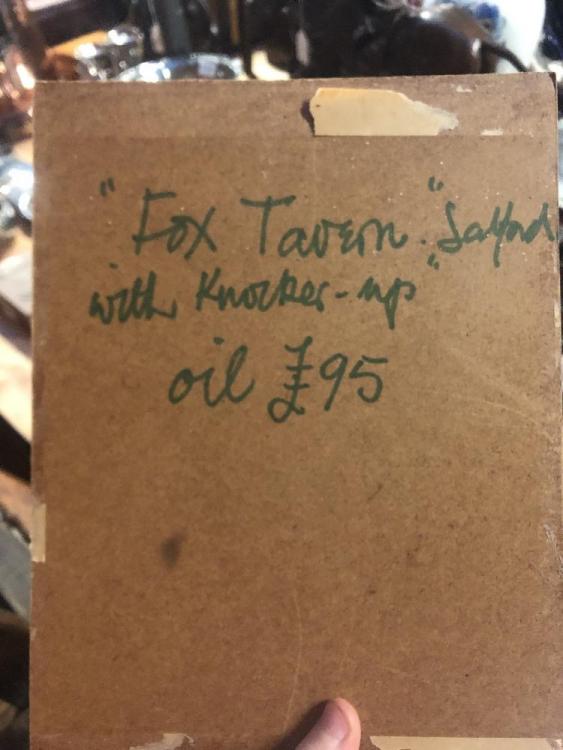 "Fox Tavern." Salford
with Knocker-up"
oil £95